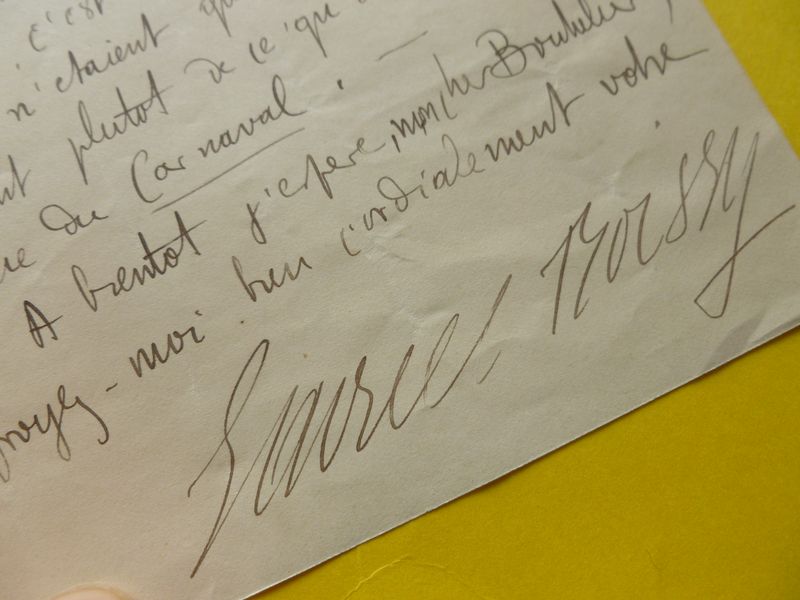 c'est
n'étaient
plutôt de ce qu
du Carnaval. —
A bientôt j'espère, mon cher Bouhelier,
croyez-moi bien cordialement votre
Gabriel Boissy